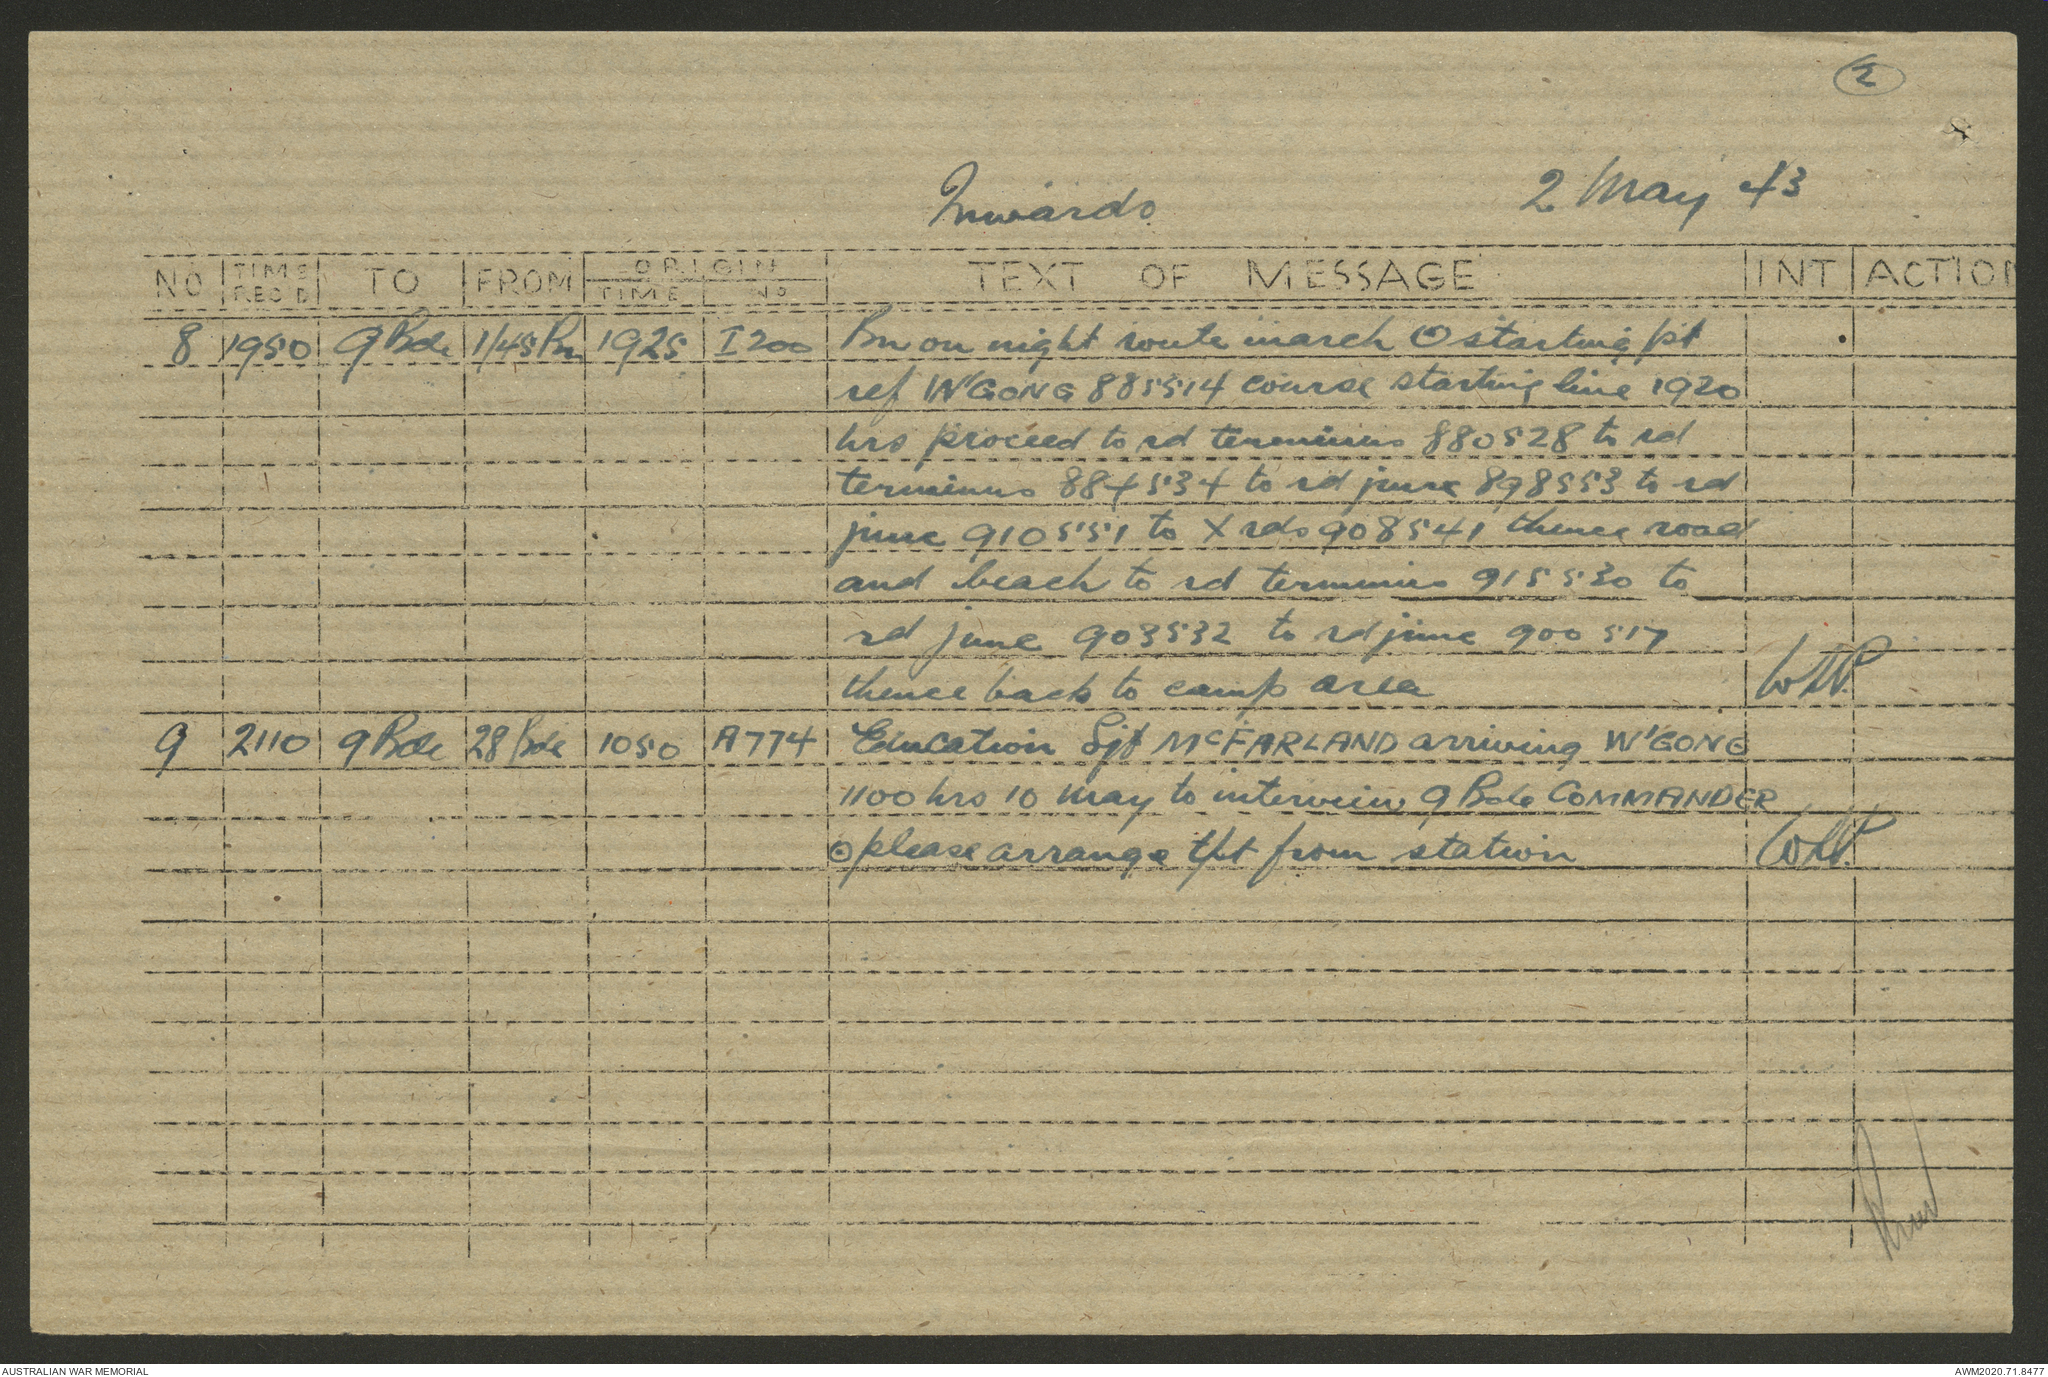 2
Inwards 2 May 43
NO TIME REC'D TO FROM ORIGIN TIME NO TEXT OF MESSAGE INT ACTION
8 1950 9 Bde 1/45 Bn 1925 I200 Bn on night route march ⊙ starting pt
ref W'GONG 885514 course starting line 1920
hrs proceed to rd terminus 880528 to rd
terminus 884534 to rd junc 898553 to rd
junc 910551 to X rds 908541 thence road
and beach to rd terminus 915530 to
rd junc 903532 to rd junc 900517
thence back to camp area
9 2110 9 Bde 28 Bde 1050 A774 Education Sjt McFARLAND arriving W'GONG
1100 hrs 10 May to interview 9 Bde COMMANDER
⊙ please arrange tpt from station
AUSTRALIAN WAR MEMORIAL AWM2020.71.8477